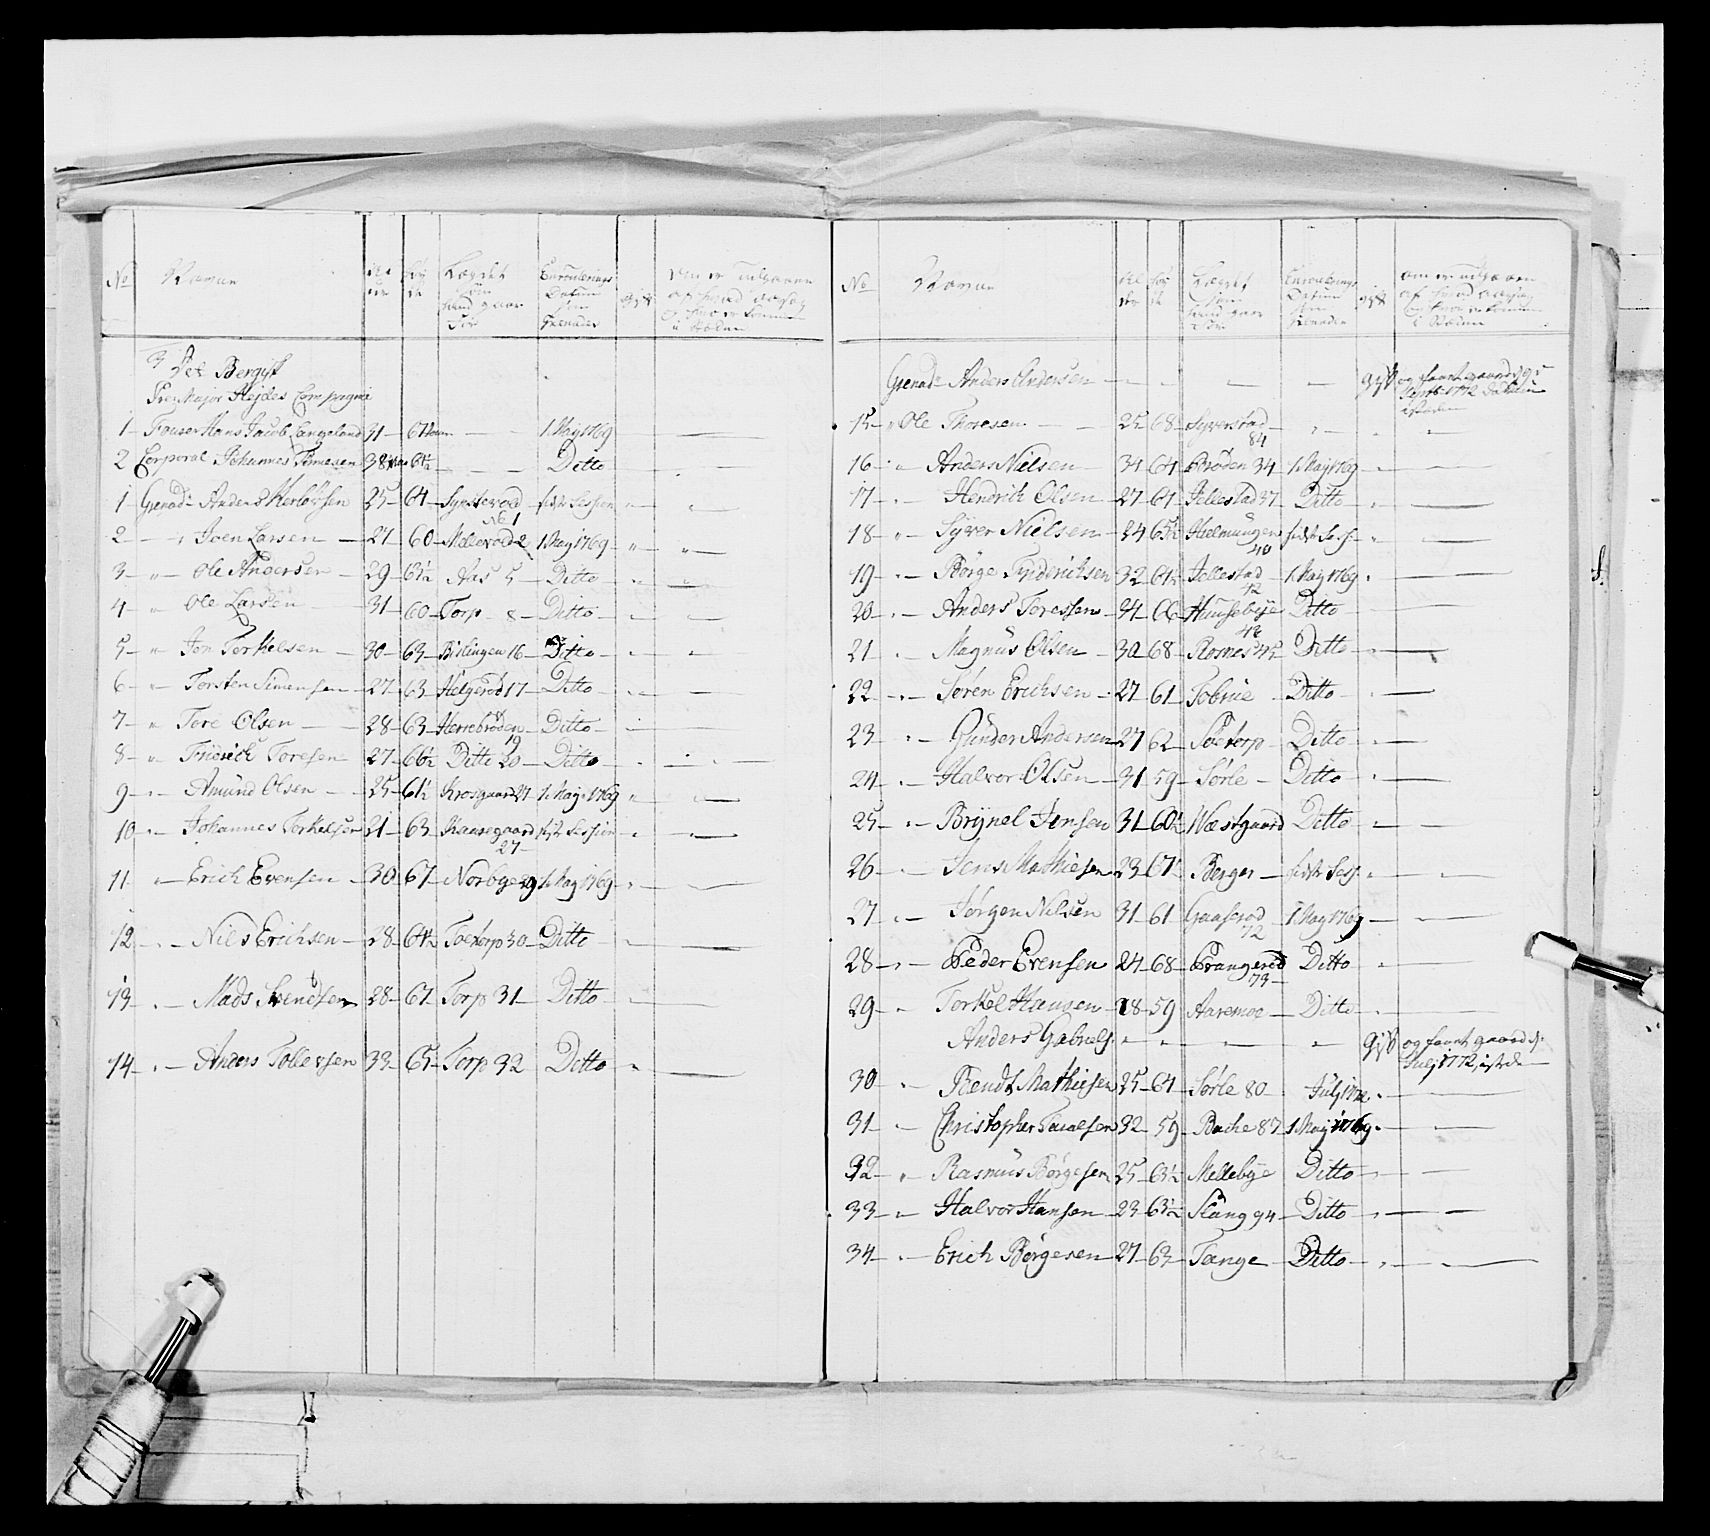 No
Navne
Alder
Lægdet som hand gaar for
Enroullerings Datum som Grenader
gift
3 Det Bergisk
Pre: Major Hejdes Compagni
1 - Fouser Hans Jacob Langeland 31 - 67 - - 1 May 1769 - -
2 Corporal Johannes 38 64½ - - - Ditto - -
1 - Grenadr Anders 25 - 64 - No 1 sidste Session " - " -
2 - " Joen Larsen - 27 - 60 - 2 1 May 1769 - " - " -
3 - " - Ole Andersen - 29 - 63½ Aas 5 - Ditto - " - " -
4 - " Ole Larsen - 31 - 60 - Torp - 8 - Ditto - " - " -
5 - " Jon Torkelsen - 30 - 63 - Bislingen 16 - Ditto - " - " -
6 - " - Torsten Simensen - 27 - 63 Helgerød 17 - Ditto - " - -
7 - " Tore Olsen - - 28 - 63 - Herrebrøden 19 - Ditto - " - -
8 - " Fridrich Toresen - 27 - 66½ Ditto 20 - Ditto - " - " -
9 - " - Amund Olsen - - 25 - 61½ Krosgaard 27 1 May 1769 " - " -
10 - " - Johannes Torkelsen 21 - 63 Kaasegaard 27 - sidste Session " - " -
11 - " - Erich Evensen - 30 - 67 - Norbye 29 1 May 1769 - " - -
12 - " - Nils Erichsen - 28 - 64½ Toetorp 30 - Ditto - " - -
13 - " - Mads Svendsen - 28 - 67 Torp 31 - Ditto - " - -
14 - " - Anders Tollevsen 33 - 65 - Torp 32 Ditto - " - -
No
Navne
Alder
Lægdet som hand gaar for
Enroullerings Datum som Grenader
gift
Grenadr Anders Andersen - - - - - gift og faaet gaard
Septbr 1772
15 - " Ole Thoresen - - 25 - 68 - Syverstad 84 - " - " - "
16 - " Anders Nielsen 34 - 64 Brøden 34 1 May 1769 " - -
17 - " - Hendrich Olsen - 27 - 67 Jellestad 37 - Ditto - " - -
18 - " - Syver Nielsen - 24 65½ 40 sidste Sess: - " - -
19 - " - Børge Friderichsen 32 61½ Jellestad 42 - 1 May 1769 " - -
20 - " - Anders Toressen - 24 - 66 Huusebye Ditto - - -
21 - " - Magnus Olsen - 30 - 68 - Rosnes 45 Ditto - " - -
22 - " - Søren Erichsen - 27 - 61 - Ditto - " - -
23 - " - Gunder Andersen 27 62 - Soetorp - Ditto - " - -
24 - " - Halvor Olsen - 31 - 59 - Sørle - Ditto - " - -
25 - " - Brynel Jensen 31 - 60½ Westgaard Ditto - " - -
26 - " - Jens Mathiesen 23 67½ Berger - sidste Sess: " - " -
27 - " - Jørgen Nilsen 31 - 61 Gaaserød 72 - 1 May 1769 - - -
28 - " - Peder Evensen 24 - 68 - Prangerød 73 - Ditto " - -
29 - " Torkel Hansen - 28 - 59 Aaremoe - Ditto - " - -
Anders Gabriels: " - " - - " - gift og faaet gaard d:
Julj 1772, i stæd -
30 - " Bendt Mathiesen 25 - 64 - Sørle 80 - Julj 1772 " - -
31 - " Christopher 32 - 59 - Bache 87 1 May 1769 " - -
32 - " Rasmus Børgesen 25 - 63½ Mellebye Ditto - " - -
33 - " - Halvor Hansen - 23 63½ Slang 94 - Ditto - " - -
34 - " - Erich Børgesen - 27 - 63 - Tange - Ditto - " - " -